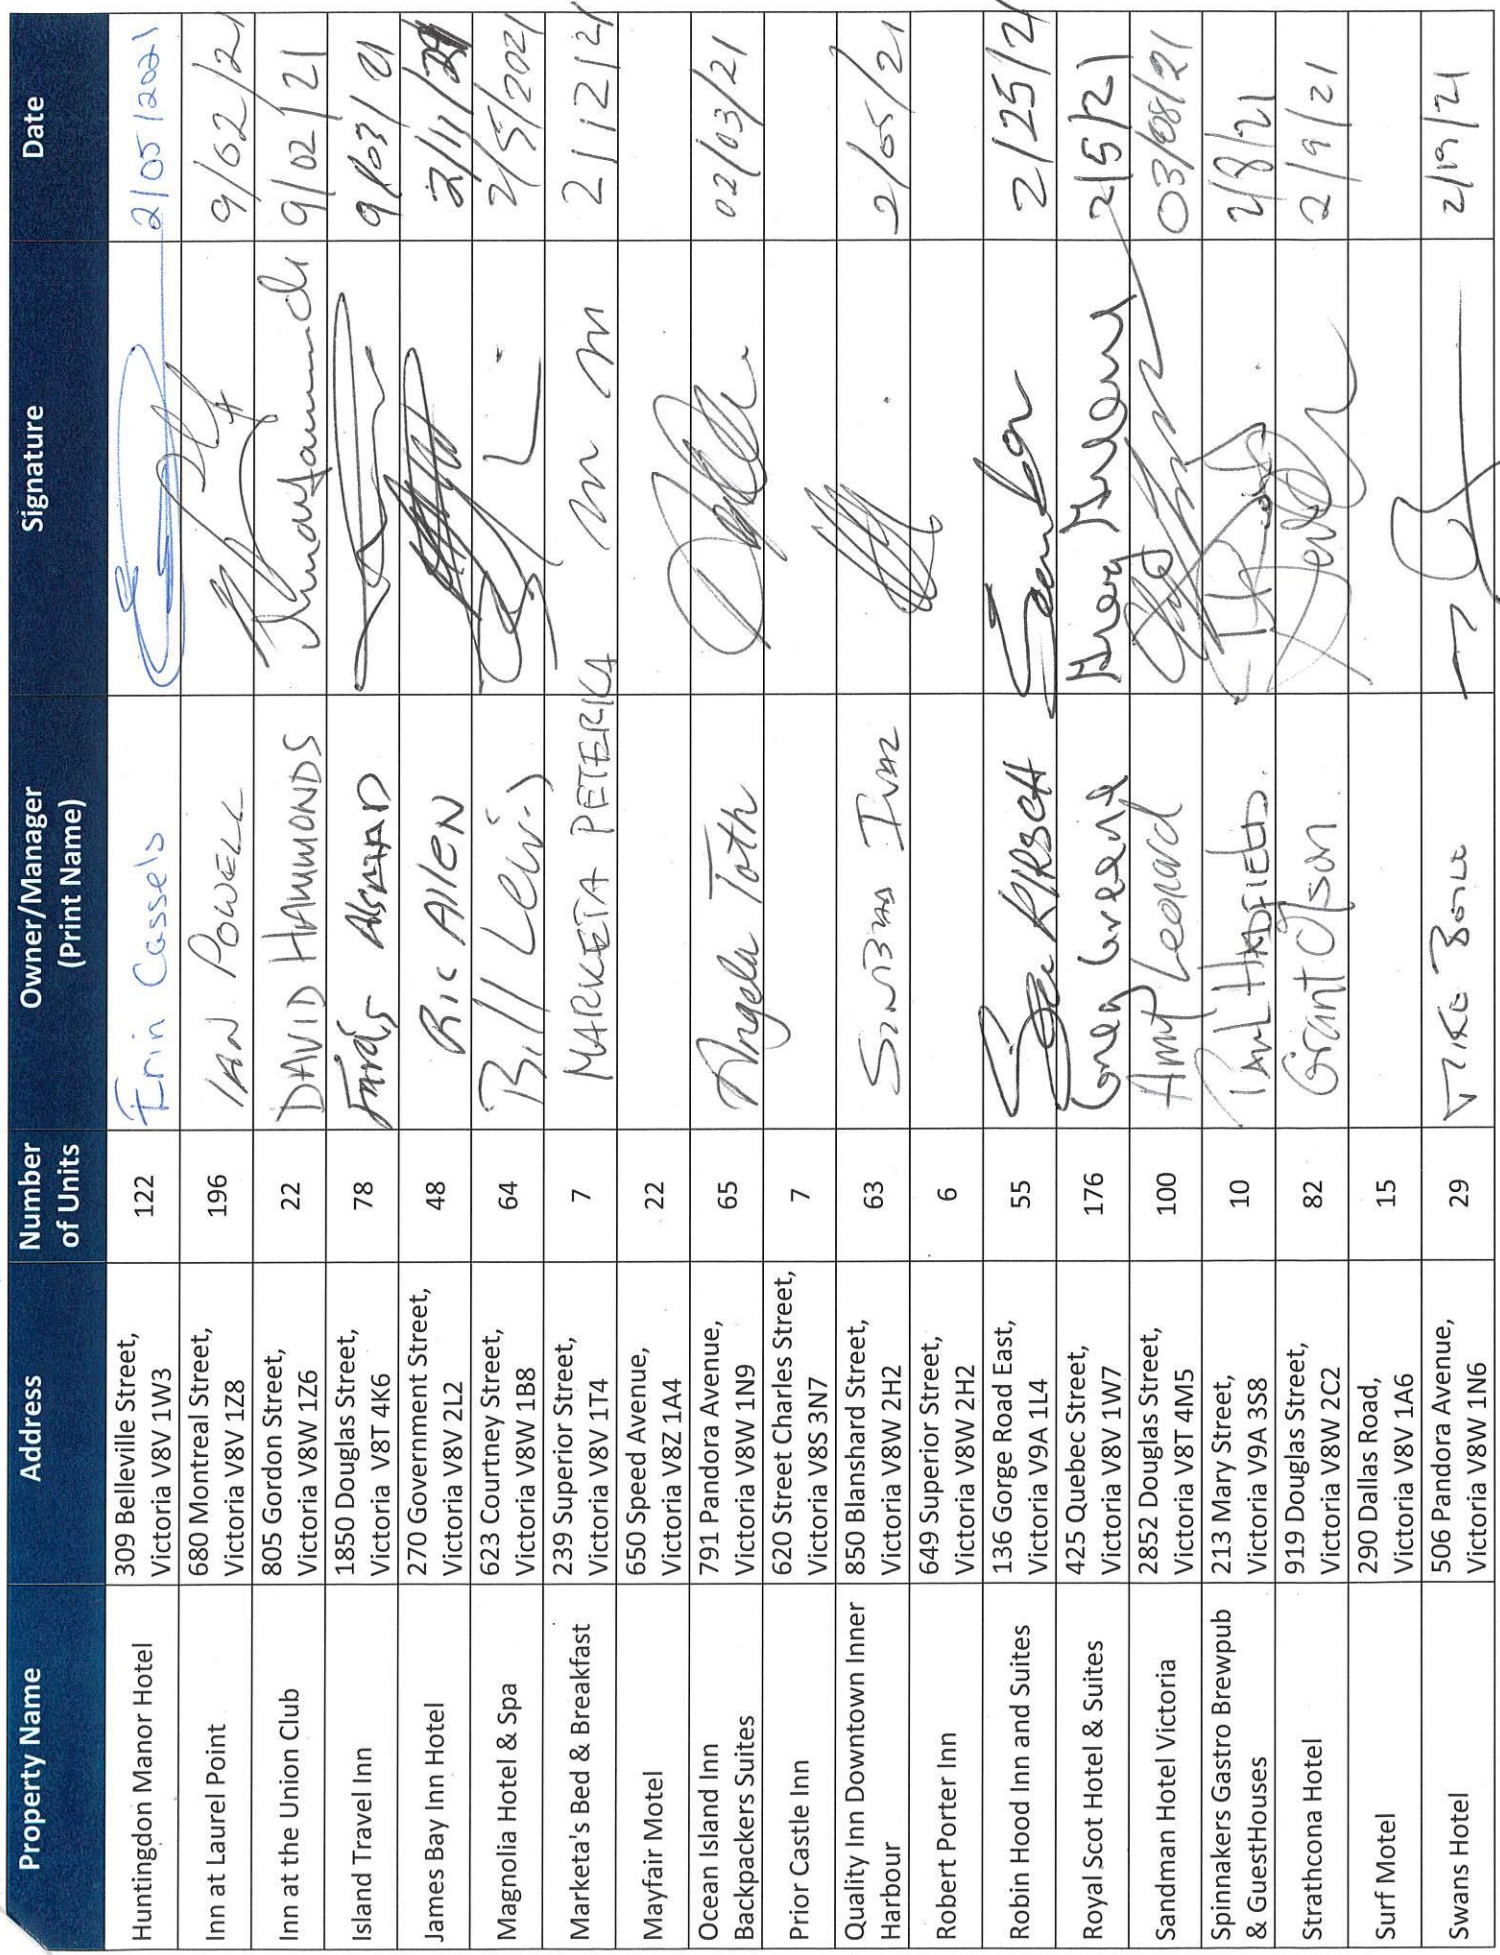 Property Name Address Number of Units Owner/Manager (Print Name) Signature Date
Huntingdon Manor Hotel 309 Belleville Street, Victoria V8V 1W3 122 Erin Cassels 2/05/2021
Inn at Laurel Point 680 Montreal Street, Victoria V8V 1Z8 196 IAN POWELL 9/02/21
Inn at the Union Club 805 Gordon Street, Victoria V8W 1Z6 22 DAVID HAMMONDS 9/02/21
Island Travel Inn 1850 Douglas Street, Victoria V8T 4K6 78 9/03/21
James Bay Inn Hotel 270 Government Street, Victoria V8V 2L2 48 Ric Allen 2/11/21
Magnolia Hotel & Spa 623 Courtney Street, Victoria V8W 1B8 64 Bill Lewis 2/5/2021
Marketa's Bed & Breakfast 239 Superior Street, Victoria V8V 1T4 7 MARKETA PETERKA 2/12/21
Mayfair Motel 650 Speed Avenue, Victoria V8Z 1A4 22
Ocean Island Inn Backpackers Suites 791 Pandora Avenue, Victoria V8W 1N9 65 Angela Toth 02/03/21
Prior Castle Inn 620 Street Charles Street, Victoria V8S 3N7 7
Quality Inn Downtown Inner Harbour 850 Blanshard Street, Victoria V8W 2H2 63 2/05/21
Robert Porter Inn 649 Superior Street, Victoria V8W 2H2 6
Robin Hood Inn and Suites 136 Gorge Road East, Victoria V9A 1L4 55 KIRSCH 2/25/21
Royal Scot Hotel & Suites 425 Quebec Street, Victoria V8V 1W7 176 Greg Greene 2/5/21
Sandman Hotel Victoria 2852 Douglas Street, Victoria V8T 4M5 100 Amy Leonard 03/08/21
Spinnakers Gastro Brewpub & GuestHouses 213 Mary Street, Victoria V9A 3S8 10 PAUL HADFIELD 2/8/21
Strathcona Hotel 919 Douglas Street, Victoria V8W 2C2 82 Grant Olson 2/9/21
Surf Motel 290 Dallas Road, Victoria V8V 1A6 15
Swans Hotel 506 Pandora Avenue, Victoria V8W 1N6 29 MIKE 2/19/21